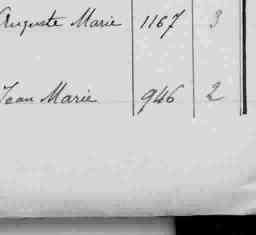 Auguste Marie 1167 3
Jean Marie 946 2